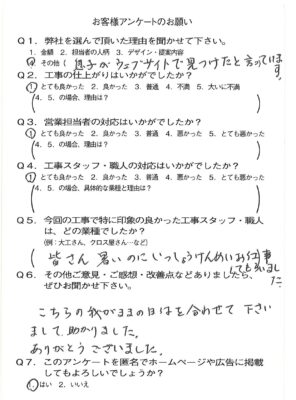 お客様アンケートのお願い
Q1. 弊社を選んで頂いた理由を聞かせて下さい。
1. 金額 2. 担当者の人柄 3. デザイン・提案内容
④ その他(息子がウェブサイトで見つけたと言っています。)
Q2. 工事の仕上がりはいかがでしたか?
① とても良かった 2. 良かった 3. 普通 4. 不満 5. 大いに不満
(4. 5. の場合、理由は?)
Q3. 営業担当者の対応はいかがでしたか?
① とても良かった 2. 良かった 3. 普通 4. 悪かった 5. とても悪かった
(4. 5. の場合、理由は?)
Q4. 工事スタッフ・職人の対応はいかがでしたか?
① とても良かった 2. 良かった 3. 普通 4. 悪かった 5. とても悪かった
(4. 5. の場合、具体的な業種と理由は?)
Q5. 今回の工事で特に印象の良かった工事スタッフ・職人
は、どの業種でしたか?
(例:大工さん、クロス屋さん…など)
(皆さん暑いのにいっしょうけんめいお仕事
してもらいました。)
Q6. その他ご意見・ご感想・改善点などありましたら、
ぜひお聞かせ下さい。
こちらの我がままの日時を合わせて下さい
まして、助かりました。
ありがとうございました。
Q7. このアンケートを匿名でホームページや広告に掲載
してもよろしいでしょうか?
① はい 2. いいえ